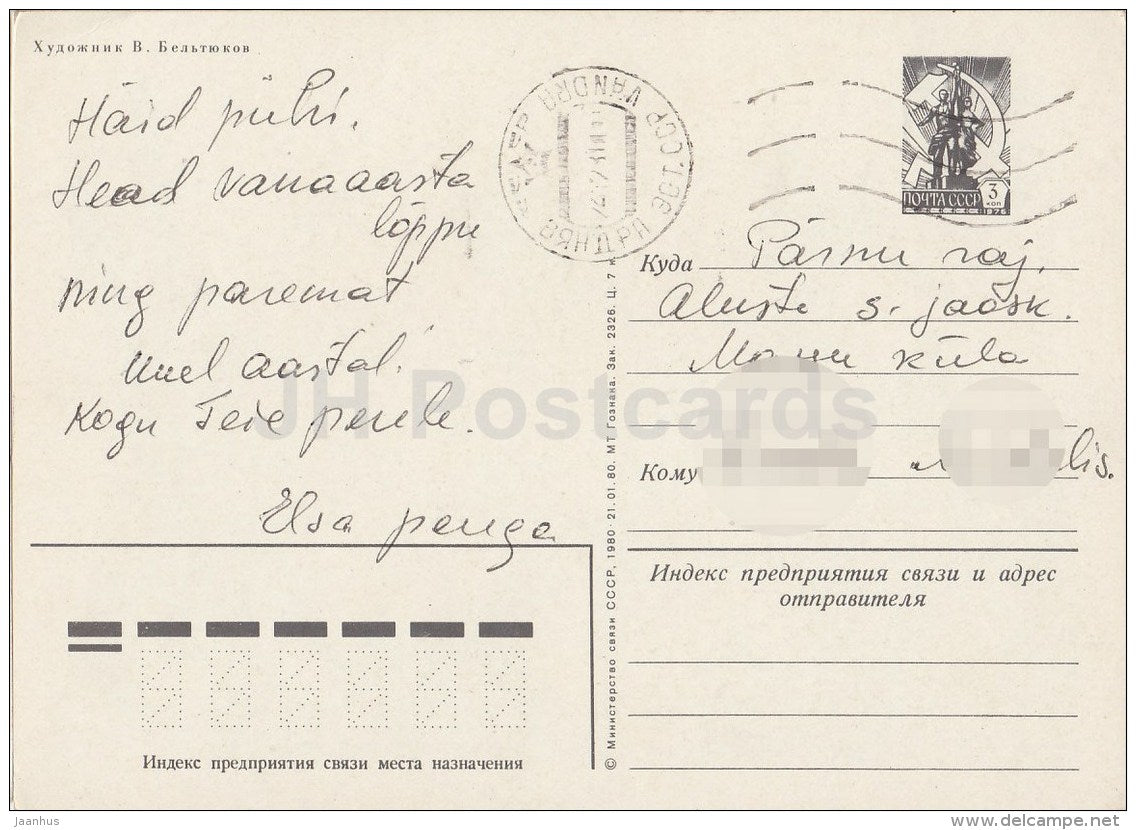 Художник В. Бельтюков
Häid pühi.
Head vanaaasta
lõppu
ning paremat
Uuel aastal.
Kogu Teie perele.
Elsa perega
VÄNDRA
ВЯНДРА
ПОЧТА СССР
3
коп
1976
Куда Pärnu raj.
Aluste s. jaosk.
küla
Кому
lis.
Индекс предприятия связи и адрес
отправителя
Индекс предприятия связи места назначения
© Министерство связи СССР, 1980 · 21.01.80. МТ Гознака. Зак. 2326. Ц. 7 к.
JH Postcards
Jaanhus
delcampe.net